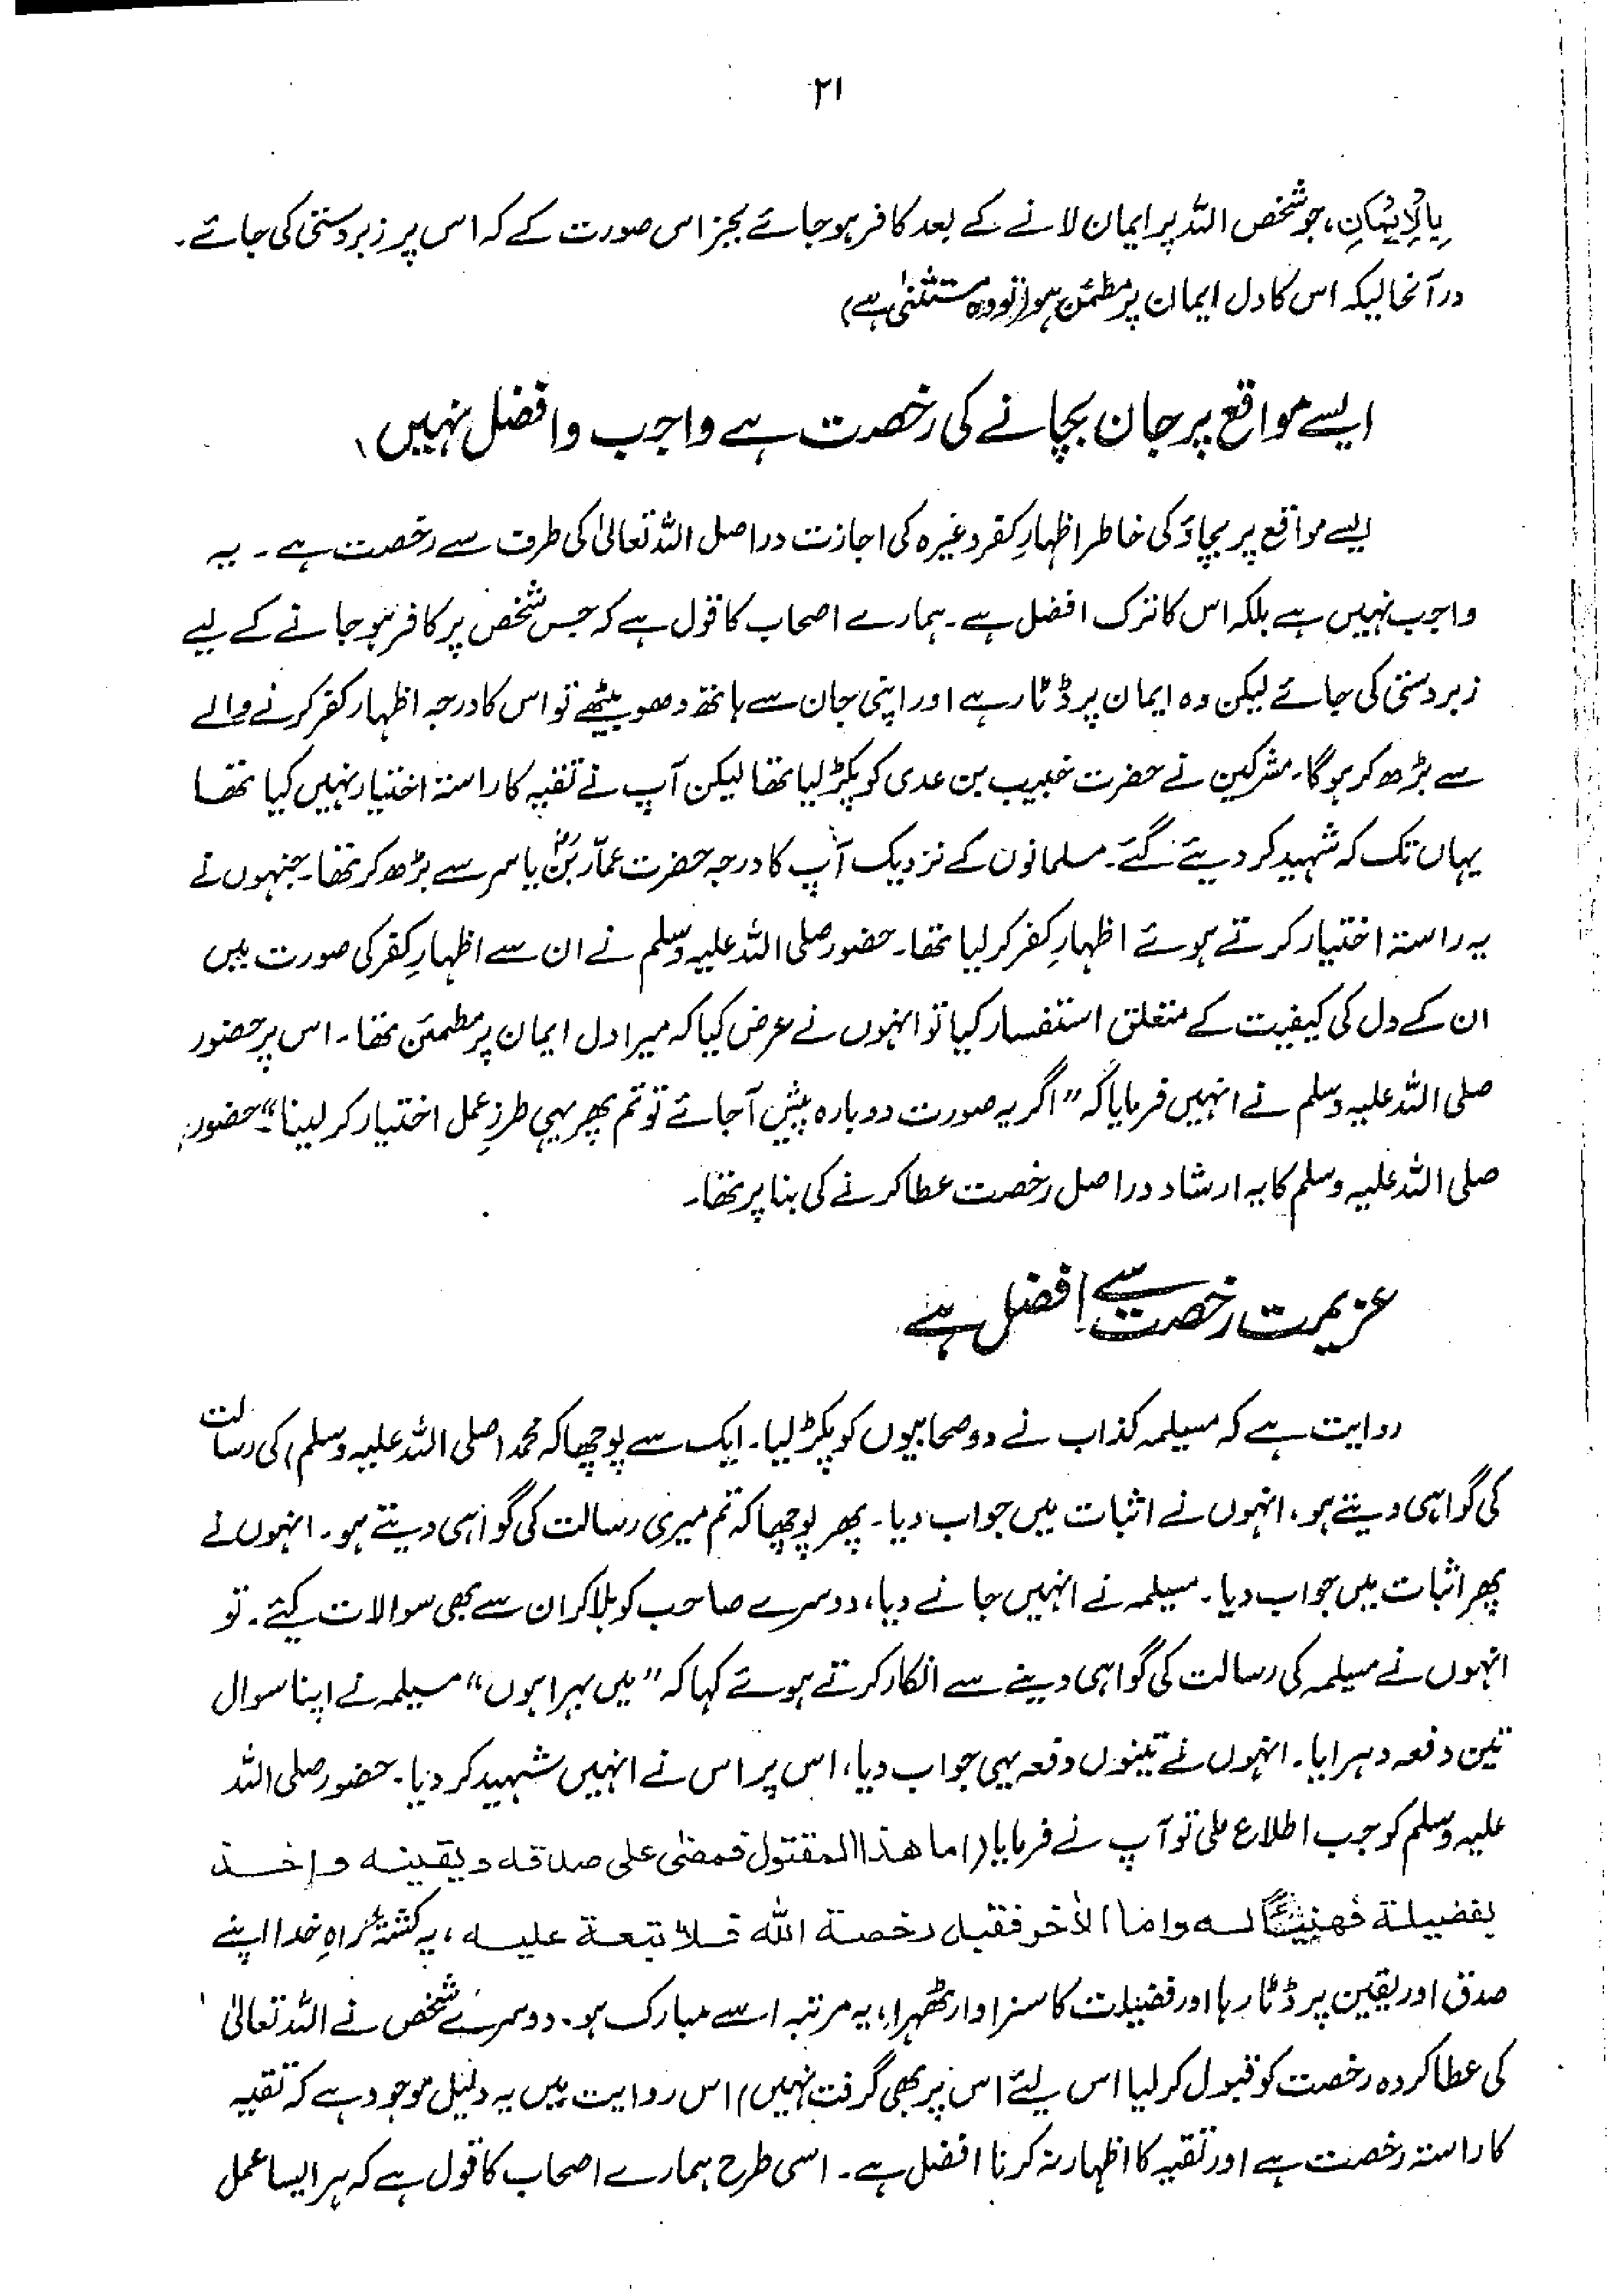 ۲۱
بِالْاِیْمَانِ، جو شخص اللہ پر ایمان لانے کے بعد کافر ہو جائے بجز اس صورت کے کہ اس پر زبردستی کی جائے۔
درآنحالیکہ اس کا دل ایمان پر مطمئن ہو (تو وہ مستثنیٰ ہے)
ایسے مواقع پر جان بچانے کی رخصت ہے واجب وافضل نہیں،
ایسے مواقع پر بچاؤ کی خاطر اظہارِ کفر وغیرہ کی اجازت دراصل اللہ تعالیٰ کی طرف سے رخصت ہے۔ یہ
واجب نہیں ہے بلکہ اس کا ترک افضل ہے۔ ہمارے اصحاب کا قول ہے کہ جس شخص پر کافر ہو جانے کے لیے
زبردستی کی جائے لیکن وہ ایمان پر ڈٹا رہے اور اپنی جان سے ہاتھ دھو بیٹھے تو اس کا درجہ اظہار کفر کرنے والے
سے بڑھ کر ہو گا۔ مشرکین نے حضرت خبیب بن عدی کو پکڑ لیا تھا لیکن آپ نے تقیہ کا راستہ اختیار نہیں کیا تھا
یہاں تک کہ شہید کر دیئے گئے۔ مسلمانوں کے نزدیک آپ کا درجہ حضرت عمّار بنؓ یاسر سے بڑھ کر تھا۔ جنہوں نے
یہ راستہ اختیار کرتے ہوئے اظہارِ کفر کر لیا تھا۔ حضور صلی اللہ علیہ وسلم نے ان سے اظہارِ کفر کی صورت میں
ان کے دل کی کیفیت کے متعلق استفسار کیا تو انہوں نے عرض کیا کہ میرا دل ایمان پر مطمئن تھا۔ اس پر حضور
صلی اللہ علیہ وسلم نے انہیں فرمایا کہ ”اگر یہ صورت دوبارہ پیش آجائے تو تم پھر یہی طرزِ عمل اختیار کر لینا“۔ حضور
صلی اللہ علیہ وسلم کا یہ ارشاد دراصل رخصت عطا کرنے کی بنا پر تھا۔
عزیمت رخصت سے افضل ہے
روایت ہے کہ مسیلمہ کذاب نے دو صحابیوں کو پکڑ لیا۔ ایک سے پوچھا کہ محمد (صلی اللہ علیہ وسلم) کی رسالت
کی گواہی دیتے ہو، انہوں نے اثبات میں جواب دیا۔ پھر پوچھا کہ تم میری رسالت کی گواہی دیتے ہو۔ انہوں نے
پھر اثبات میں جواب دیا۔ مسیلمہ نے انہیں جانے دیا، دوسرے صاحب کو بلا کر ان سے بھی سوالات کیئے۔ تو
انہوں نے مسیلمہ کی رسالت کی گواہی دینے سے انکار کرتے ہوئے کہا کہ ”میں بہرا ہوں“ مسیلمہ نے اپنا سوال
تین دفعہ دہرایا۔ انہوں نے تینوں دفعہ یہی جواب دیا، اس پر اس نے انہیں شہید کر دیا۔ حضور صلی اللہ
علیہ وسلم کو جب اطلاع ملی تو آپ نے فرمایا (اما هذا المقتول فمضیٰ علی صدقه ویقینه واخذ
بفضیلة فهنیئًا له واما الآخر فقبل رخصة الله فلا تبعة علیه، یہ کشتۂ راہِ خدا اپنے
صدق اور یقین پر ڈٹا رہا اور فضیلت کا سزاوار ٹھہرا، یہ مرتبہ اسے مبارک ہو۔ دوسرے شخص نے اللہ تعالیٰ
کی عطا کردہ رخصت کو قبول کر لیا اس لیئے اس پر بھی گرفت نہیں) اس روایت میں یہ دلیل موجود ہے کہ تقیہ
کا راستہ رخصت ہے اور تقیہ کا اظہار نہ کرنا افضل ہے۔ اسی طرح ہمارے اصحاب کا قول ہے کہ ہر ایسا عمل